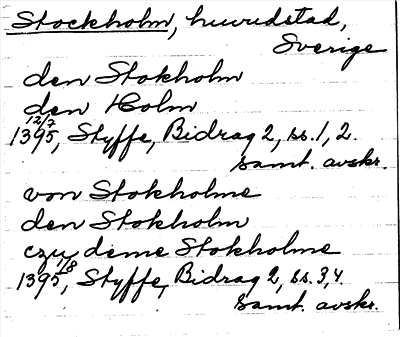 Stockholm, huvudstad,
Sverige
den Stokholm
den Holm
12/7
1395, Styffe, Bidrag 2, ss. 1, 2.
samt. avskr.
von Stokholme
den Stokholm
czu deme Stokholme
1/8
1395, Styffe, Bidrag 2, ss. 3, 4.
samt. avskr.